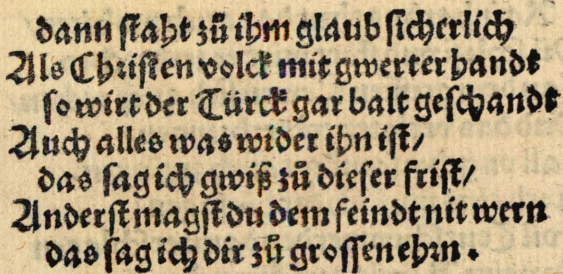 dann staht zů ihm glaub sicherlich
Als Christen volck mit gwerter handt
so wirt der Türck gar balt geschandt
Auch alles was wider ihn ist/
das sag ich gwiß zů dieser frist/
Anderst magst du dem feindt nit wern
das sag ich dir zů grossen ehrn.